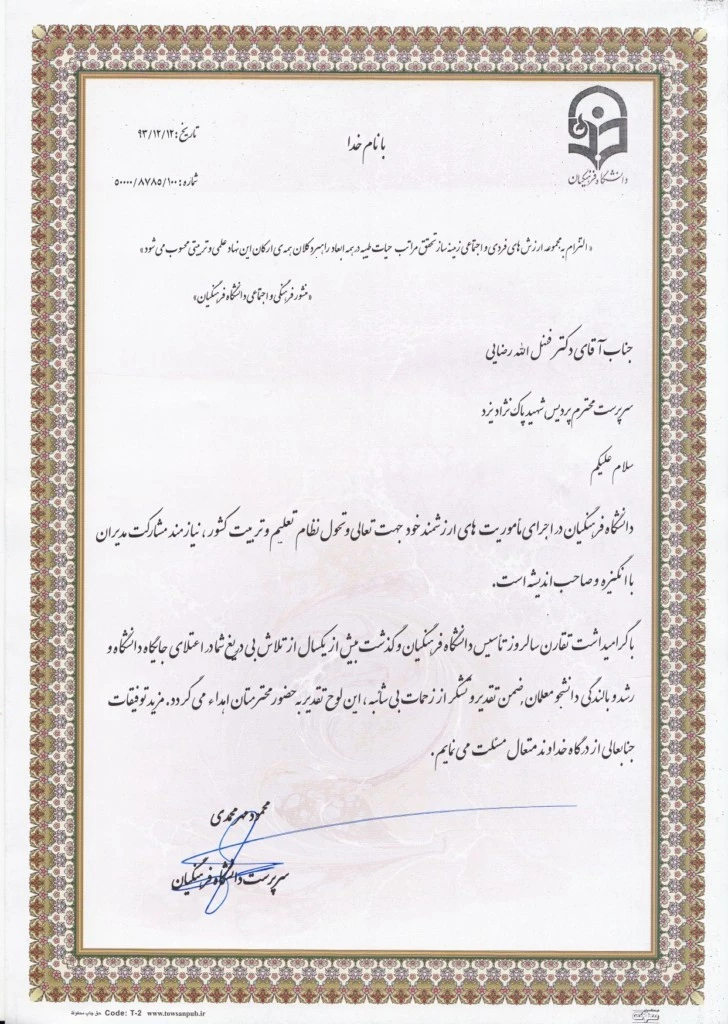 دانشگاه فرهنگیان
با نام خدا
تاریخ: ۹۳/۱۲/۱۲
شماره: ۵۰۰۰۰/۸۷۸۵/۱۰۰
«التزام به مجموعه ارزش های فردی و اجتماعی زمینه ساز تحقق مراتب حیات طیبه در همه ابعاد راهبرد کلان همه ی ارکان این نهاد علمی و تربیتی محسوب می شود»
«منشور فرهنگی و اجتماعی دانشگاه فرهنگیان»
جناب آقای دکتر فضل الله رضایی
سرپرست محترم پردیس شهید پاک نژاد یزد
سلام علیکم
دانشگاه فرهنگیان در اجرای مأموریت های ارزشمند خود جهت تعالی و تحول نظام تعلیم و تربیت کشور، نیازمند مشارکت مدیران
با انگیزه و صاحب اندیشه است.
با گرامیداشت تقارن سالروز تأسیس دانشگاه فرهنگیان و گذشت بیش از یکسال از تلاش بی دریغ شما در اعتلای جایگاه دانشگاه و
رشد و بالندگی دانشجو معلمان، ضمن تقدیر و تشکر از زحمات بی شائبه، این لوح تقدیر به حضور محترمتان اهداء می گردد. مزید توفیقات
جنابعالی از درگاه خداوند متعال مسئلت می نمایم.
محمود مهرمحمدی
سرپرست دانشگاه فرهنگیان
حق چاپ محفوظ Code: T-2 www.towsanpub.ir